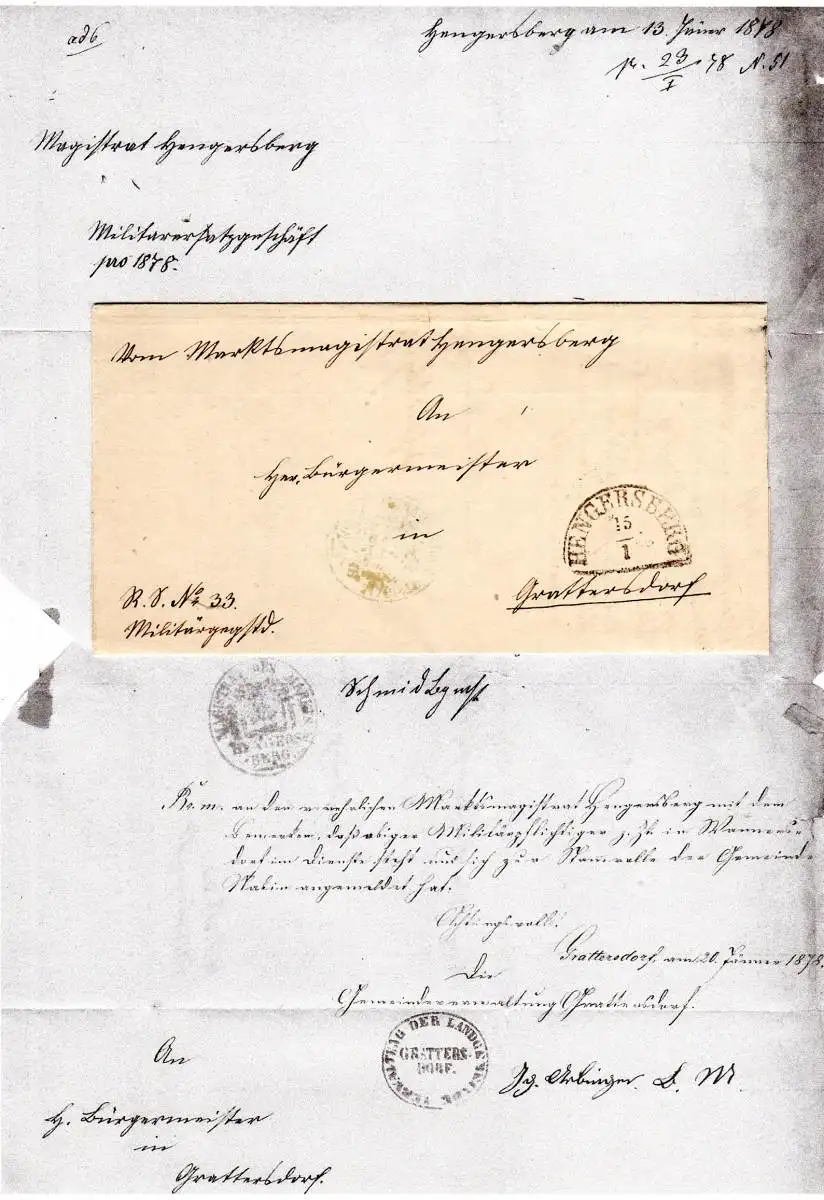 ad 6
Hengersberg am 13. Jäner 1878
pr. 23/I 78 N. 51
Magistrat Hengersberg
Militärersatzgeschäft
pro 1878.
Vom Marktsmagistrat Hengersberg
An
Her. Bürgermeister
in
Grattersdorf
HENGERSBERG
15/1
R. S. No 33.
Militärgegstd.
Schmid Bgmst
HENGERSBERG
an den verehrlichen Marktsmagistrat Hengersberg mit dem
Bemerken, daß obiger Militärpflichtiger z. Zt. in
dorf im Dienste steht und sich zur Stamrolle der Gemeinde
angemeldet hat.
Achtungsvollst.
Grattersdorf, am 20. Jänner 1878.
Die
Gemeindeverwaltung Grattersdorf.
VERWALTUNG DER LANDGEMEINDE
GRATTERS-
DORF.
Jg. Arbinger. B. M.
An
H. Bürgermeister
in
Grattersdorf.